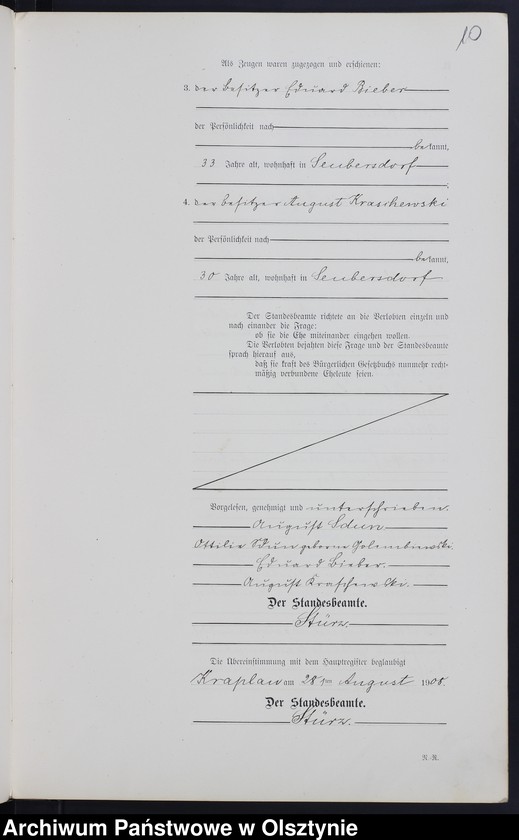 10
Als Zeugen waren zugezogen und erschienen:
3. der Besitzer Eduard Bieber
der Persönlichkeit nach
bekannt,
33 Jahre alt, wohnhaft in Seubersdorf
;
4. der Besitzer August Kraschewski
der Persönlichkeit nach
bekannt,
30 Jahre alt, wohnhaft in Seubersdorf
Der Standesbeamte richtete an die Verlobten einzeln und
nach einander die Frage:
ob sie die Ehe miteinander eingehen wollen.
Die Verlobten bejahten diese Frage und der Standesbeamte
sprach hierauf aus,
daß sie kraft des Bürgerlichen Gesetzbuchs nunmehr recht-
mäßig verbundene Eheleute seien.
Vorgelesen, genehmigt und unterschrieben.
August Sdun
Ottilie Sdun geborne Golembiewski.
Eduard Bieber.
August Kraschewski.
Der Standesbeamte.
Stürz.
Die Übereinstimmung mit dem Hauptregister beglaubigt
Kraplau am 28ten August 1908.
Der Standesbeamte.
Stürz.
R.-R.
Archiwum Państwowe w Olsztynie